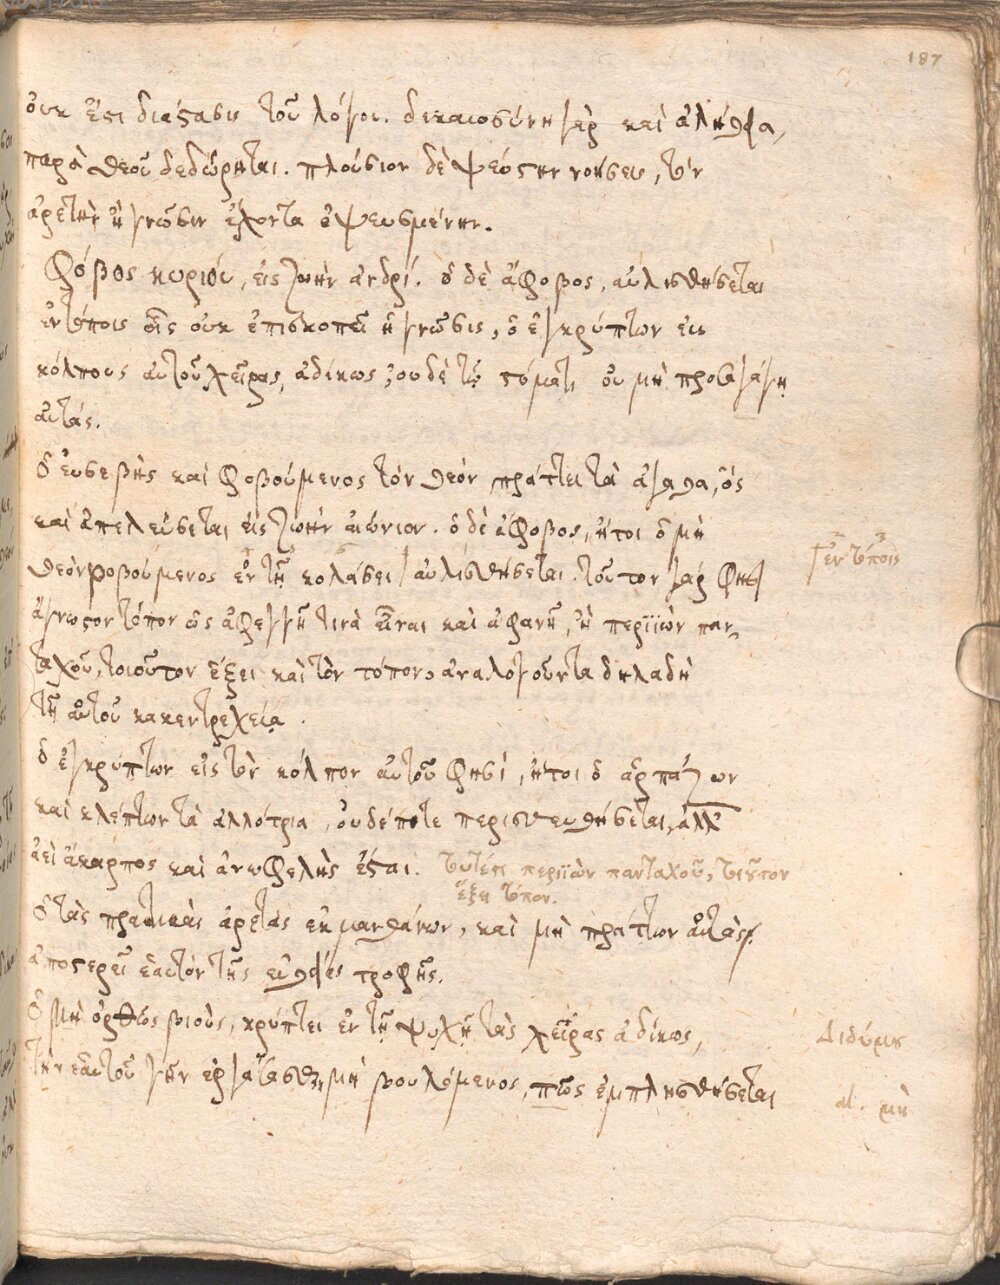 187
οὐκ ἔστι διάστασις τοῦ λόγου. δικαιοσύνη γὰρ καὶ ἀλήθεια,
παρὰ θεοῦ δεδώρηται. πλούσιον δὲ ψεύστην νοήσεις, τὸν
ἀρετὴν ἢ γνῶσιν ἔχοντα ἐψευσμένην.
Φόβος κυρίου, εἰς ζωὴν ἀνδρί. ὁ δὲ ἄφοβος, αὐλισθήσεται
ἐν τόποις οἷς οὐκ ἐπισκοπεῖ ἡ γνῶσις, ὁ ἐγκρύπτων εἰς
κόλπους αὐτοῦ χεῖρας, ἀδίκως, οὐδὲ τῷ στόματι οὐ μὴ προσαγάγῃ
αὐτάς.
Ὁ εὐσεβὴς καὶ φοβούμενος τὸν θεὸν πράττει τὰ ἀγαθα, ὃς
καὶ ἀπελεύσεται εἰς ζωὴν αἰώνιον. ὁ δὲ ἄφοβος, ἤτοι ὁ μὴ
θεὸν φοβούμενος ἐν τῇ κολάσει αὐλισθήσεται. τοῦτον γάρ φησι
ἐν τόποις
ἄγνωστον τόπον ὡς ἀφεγγῆ τινὰ εἶναι καὶ ἀφανῆ, ἢ περιϊὼν παν
ταχοῦ, τοιοῦτον ἕξει καὶ τὸν τόπον, ἀναλογοῦντα δηλαδὴ
τῇ αὐτοῦ κακεντρεχείᾳ.
ὁ ἐγκρύπτων εἰς τὸν κόλπον αὐτοῦ φησὶ, ἤτοι ὁ ἁρπάζων
καὶ κλέπτων τὰ ἀλλότρια, οὐδέποτε περισσευθήσεται, ἀλλ'
ἀεὶ ἄκαρπος καὶ ἀνωφελὴς ἔσται. τουτέστι περιϊὼν πανταχοῦ, τοιοῦτον
ἕξει τόπον.
Ὁ τὰς πρακτικὰς ἀρετὰς ἐκμανθάνων, καὶ μὴ πράττων αὐτὰς,
ἀποστερεῖ ἑαυτὸν τῆς εὐθείας τροφῆς.
Ὁ μὴ ὀρθῶς βιοὺς, κρύπτει ἐν τῇ ψυχῇ τὰς χεῖρας ἀδίκως,
Διδύμου
τὴν ἑαυτοῦ γῆν ἐργάζεσθαι μὴ βουλόμενος, πῶς ἐμπλησθήσεται
al. μὴ